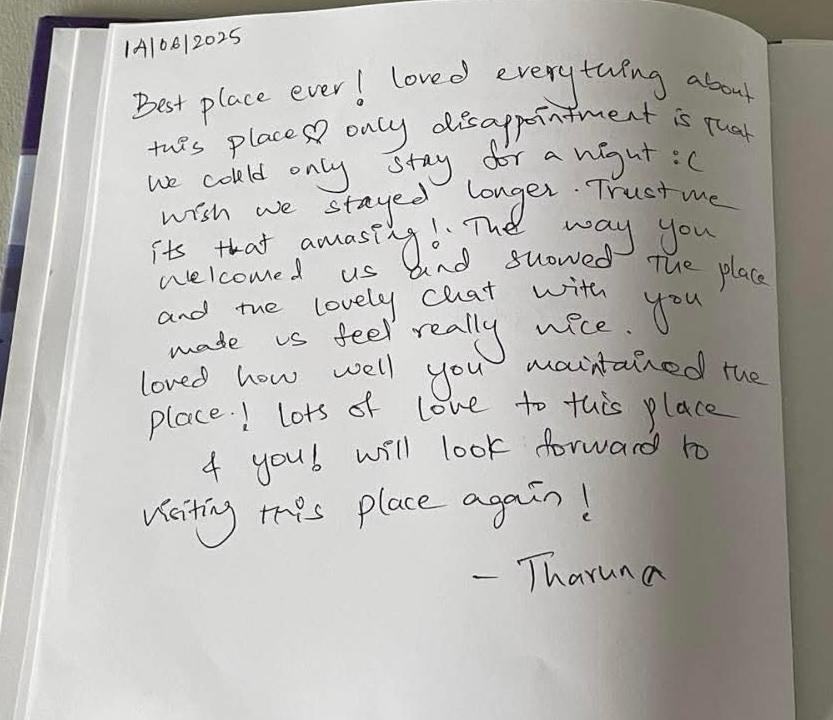 14/06/2025
Best place ever! loved everything about
this place♡ only disappointment is that
we could only stay for a night :(
wish we stayed longer. Trust me
its that amasing!. The way you
welcomed us and showed the place
and the lovely chat with you
made us feel really nice.
loved how well you maintained the
place.! lots of love to this place
& you! will look forward to
visiting this place again!
- Tharuna